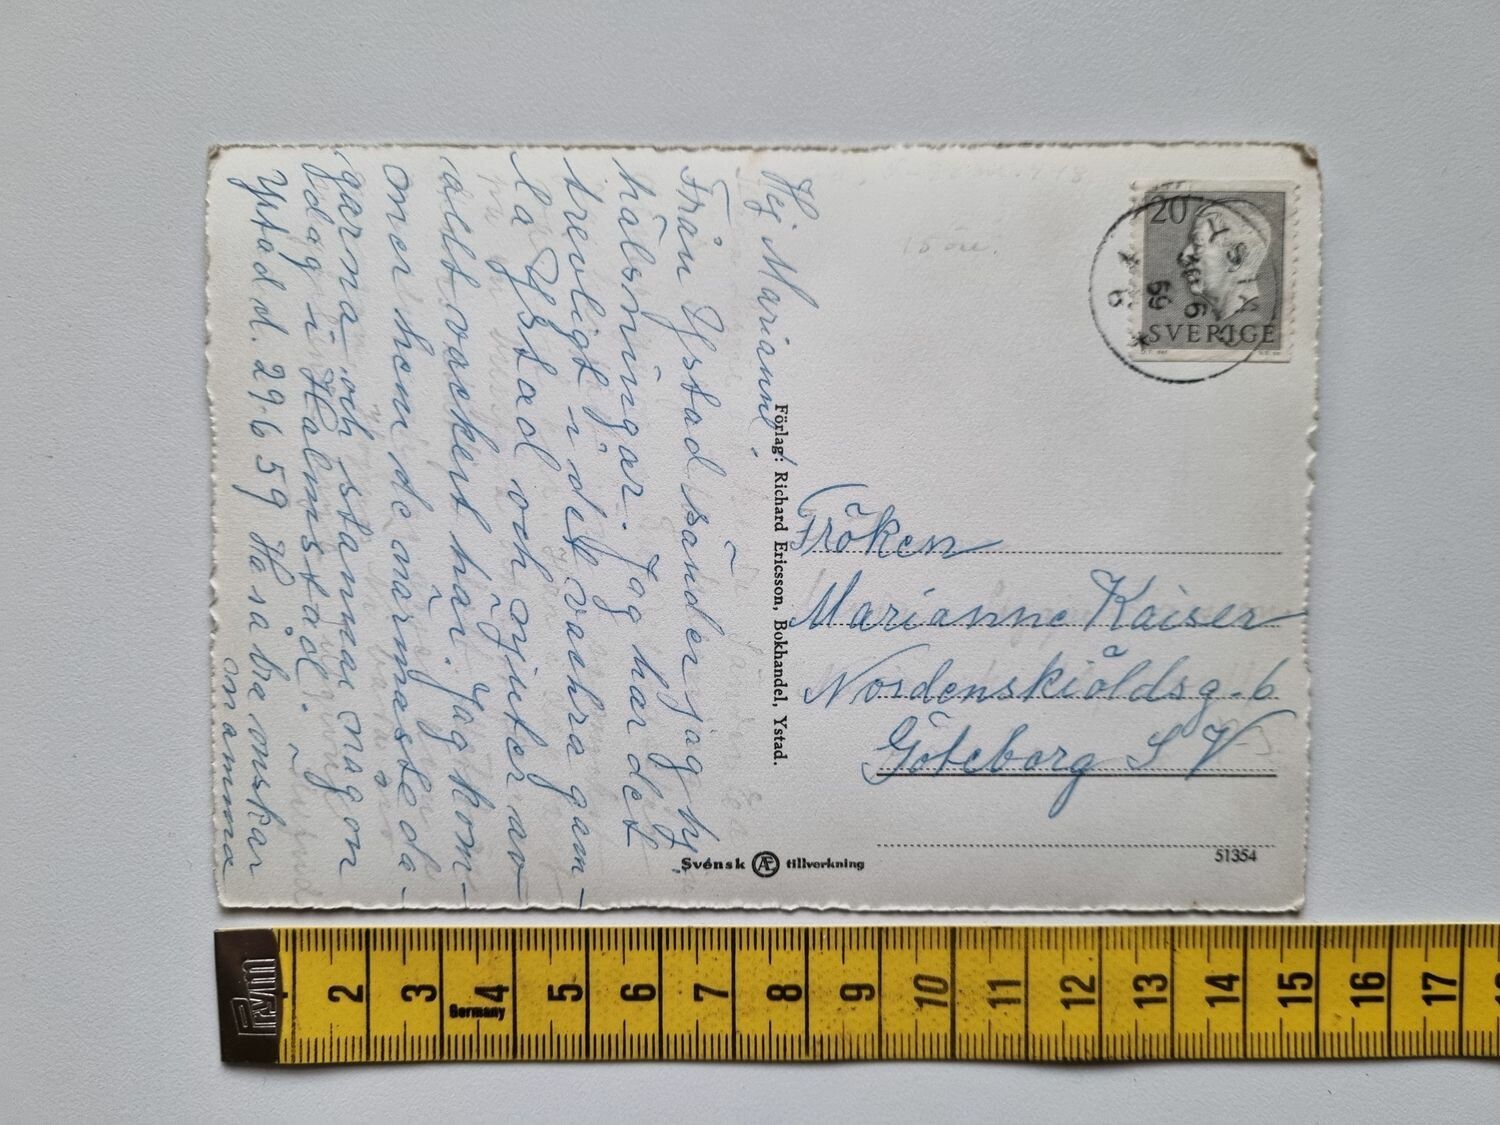 Hej Marianne!
Från Ystad sänder jag hj.
hälsningar. Jag har det
trevligt i det vackra gam-
la Ystad och njuter av
allt vackert här. Jag kom-
mer hem de närmaste da-
garna och stannar någon
dag i Halmstad.
Ystad d. 29.6 59 Ha så bra önskar
mamma
Förlag: Richard Ericsson, Bokhandel, Ystad.
Svensk AE tillverkning
15 öre.
20
SVERIGE
YSTAD
6
59
Fröken
Marianne Kaiser
Nordenskiöldsg. 6
Göteborg S V
51354
PRYM
Germany
2 3 4 5 6 7 8 9 10 11 12 13 14 15 16 17